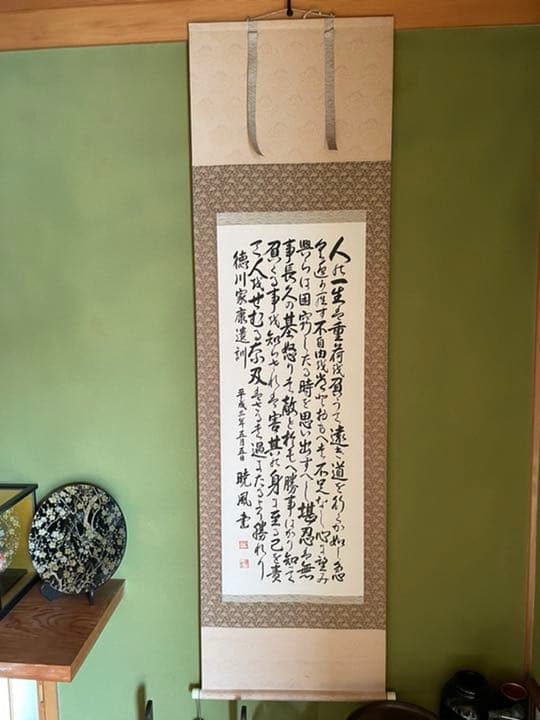 人の一生は重荷を負うて遠き道を行くか如し急
くへからす不自由を常とおもへは不足なし心に望み
興らは困窮したる時を思い出すへし堪忍は無
事長久の基怒りは敵と於もへ勝事はかり知て
負くる事を知らされは害其の身に至る己を責
て人をせむる奈及はさるは過きたるより勝れり
徳川家康遺訓 平成二年五月五日 暁風書